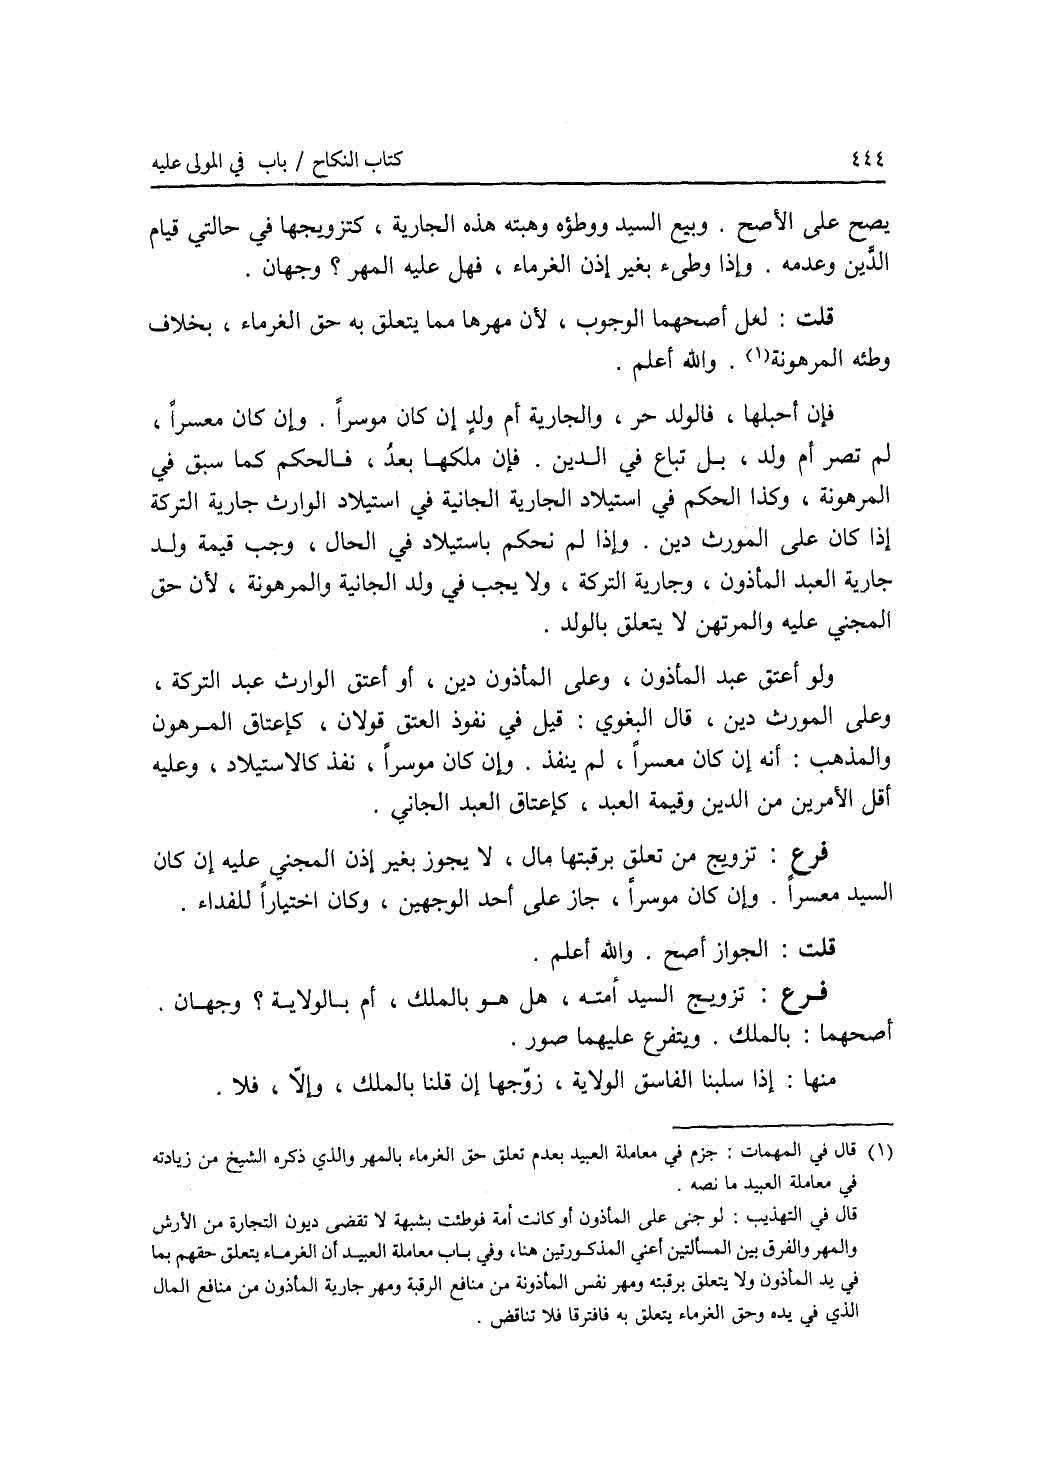 ٤٤٤ كتاب النكاح / باب في المولى عليه
يصح على الأصح . وبيع السيد ووطؤه وهبته هذه الجارية ، كتزويجها في حالتي قيام
الدَّين وعدمه . وإذا وطىء بغير إذن الغرماء ، فهل عليه المهر ؟ وجهان .
قلت : لعل أصحهما الوجوب ، لأن مهرها مما يتعلق به حق الغرماء ، بخلاف
وطئه المرهونة(١) . والله أعلم .
فإن أحبلها ، فالولد حر ، والجارية أم ولدٍ إن كان موسراً . وإن كان معسراً ،
لم تصر أم ولد ، بل تباع في الدين . فإن ملكها بعدُ ، فالحكم كما سبق في
المرهونة ، وكذا الحكم في استيلاد الجارية الجانية في استيلاد الوارث جارية التركة
إذا كان على المورث دين . وإذا لم نحكم باستيلاد في الحال ، وجب قيمة ولد
جارية العبد المأذون ، وجارية التركة ، ولا يجب في ولد الجانية والمرهونة ، لأن حق
المجني عليه والمرتهن لا يتعلق بالولد .
ولو أعتق عبد المأذون ، وعلى المأذون دين ، أو أعتق الوارث عبد التركة ،
وعلى المورث دين ، قال البغوي : قيل في نفوذ العتق قولان ، كإعتاق المرهون
والمذهب : أنه إن كان معسراً ، لم ينفذ . وإن كان موسراً ، نفذ كالاستيلاد ، وعليه
أقل الأمرين من الدين وقيمة العبد ، كإعتاق العبد الجاني .
فرع : تزويج من تعلق برقبتها مال ، لا يجوز بغير إذن المجني عليه إن كان
السيد معسراً . وإن كان موسراً ، جاز على أحد الوجهين ، وكان اختياراً للفداء .
قلت : الجواز أصح . والله أعلم .
فرع : تزويج السيد أمته ، هل هو بالملك ، أم بالولاية ؟ وجهان .
أصحهما : بالملك . ويتفرع عليهما صور .
منها : إذا سلبنا الفاسق الولاية ، زوّجها إن قلنا بالملك ، وإلاّ ، فلا .
(١) قال في المهمات : جزم في معاملة العبيد بعدم تعلق حق الغرماء بالمهر والذي ذكره الشيخ من زيادته
في معاملة العبيد ما نصه .
قال في التهذيب : لو جنى على المأذون أو كانت أمة فوطئت بشبهة لا تقضى ديون التجارة من الأرش
والمهر والفرق بين المسألتين أعني المذكورتين هنا، وفي باب معاملة العبيد أن الغرماء يتعلق حقهم بما
في يد المأذون ولا يتعلق برقبته ومهر نفس المأذونة من منافع الرقبة ومهر جارية المأذون من منافع المال
الذي في يده وحق الغرماء يتعلق به فافترقا فلا تناقض .